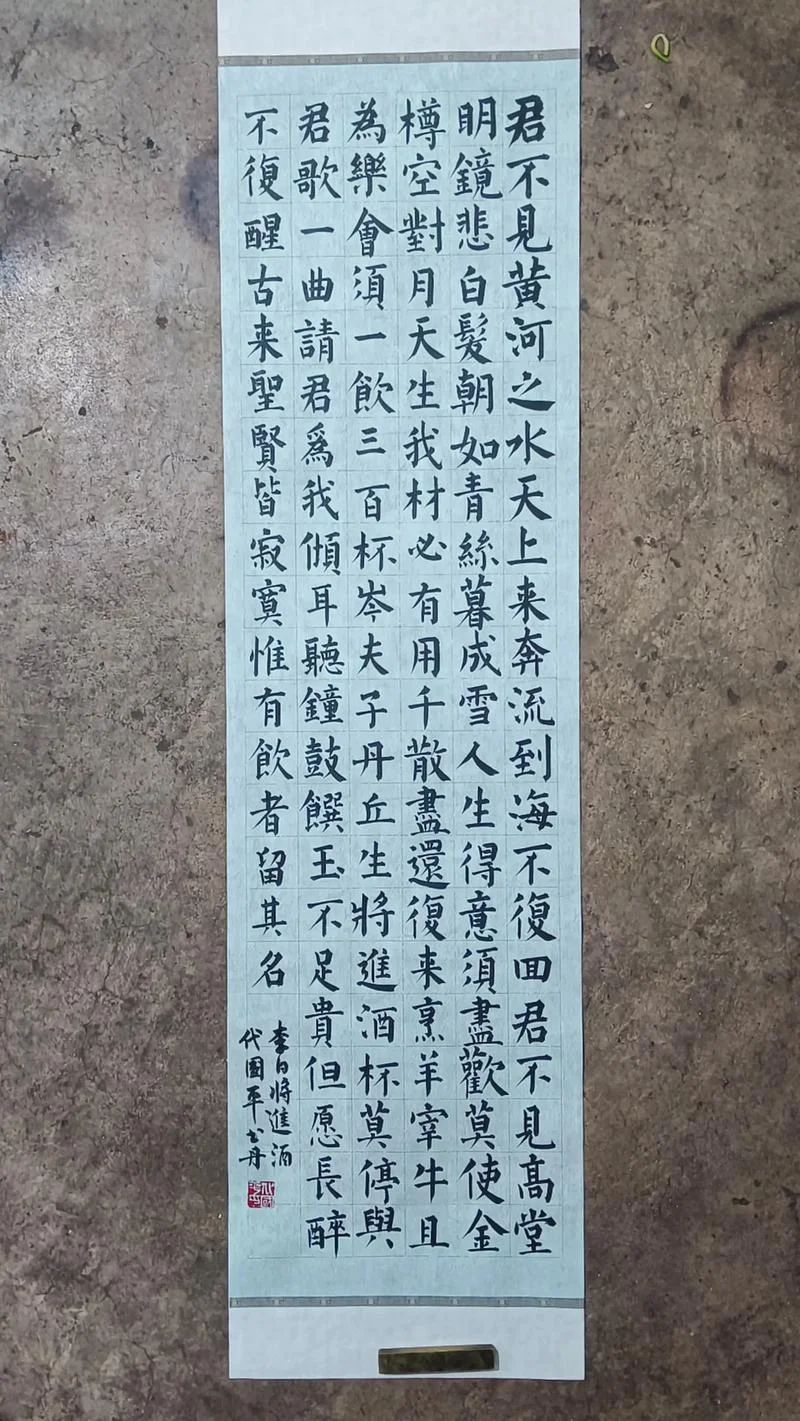 君不見黄河之水天上来奔流到海不復回君不見高堂
明鏡悲白髮朝如青絲暮成雪人生得意須盡歡莫使金
樽空對月天生我材必有用千散盡還復来烹羊宰牛且
為樂會須一飲三百杯岑夫子丹丘生將進酒杯莫停與
君歌一曲請君爲我傾耳聽鐘鼓饌玉不足貴但愿長醉
不復醒古来聖賢皆寂寞惟有飲者留其名
李白將進酒
代國平書丹